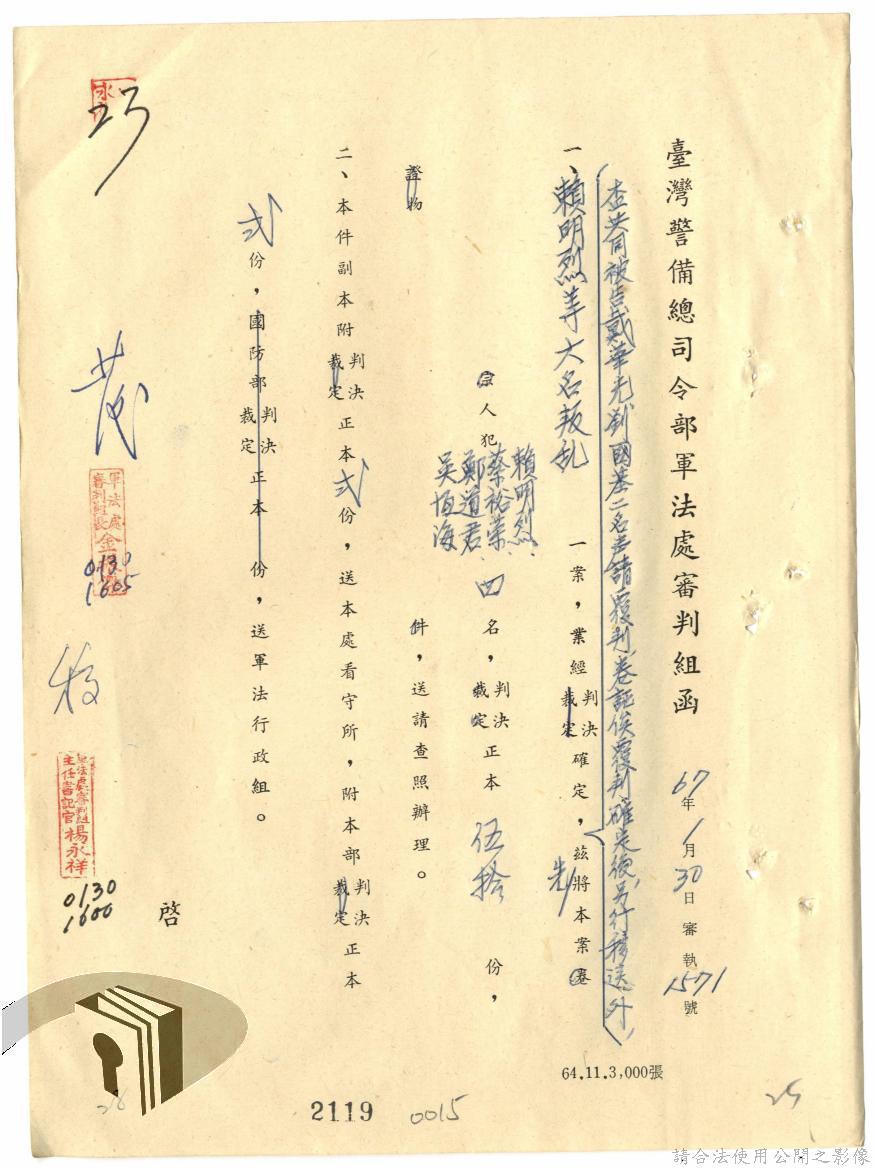 臺灣警備總司令部軍法處審判組函
67年1月30日審執1571號
查共同被告戴華光劉國基二名声請覆判,卷証俟覆判確定後,另行移送外,
一、賴明烈等六名叛乱一案,業經判決裁定確定,茲先將本案卷
宗人犯賴明烈、蔡裕榮、鄭道君、吳恆海四名,判決裁定正本伍拾份,
證物件,送請查照辦理。
二、本件副本附判決裁定正本弍份,送本處看守所,附本部判決裁定正本
弍份,國防部判決裁定正本份,送軍法行政組。
啓
軍法處審判組
主任書記官楊永祥
0130
1600
軍法處
審判組長金
0130
1605
64.11.3,000張
2119
0015
25
26
請合法使用公開之影像